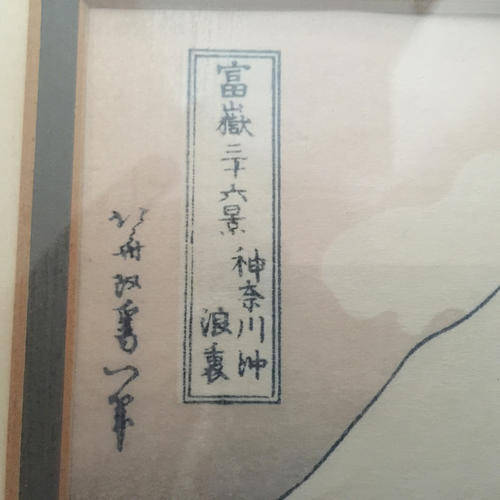 富嶽三十六景
神奈川沖
浪裏
北斎改為一筆